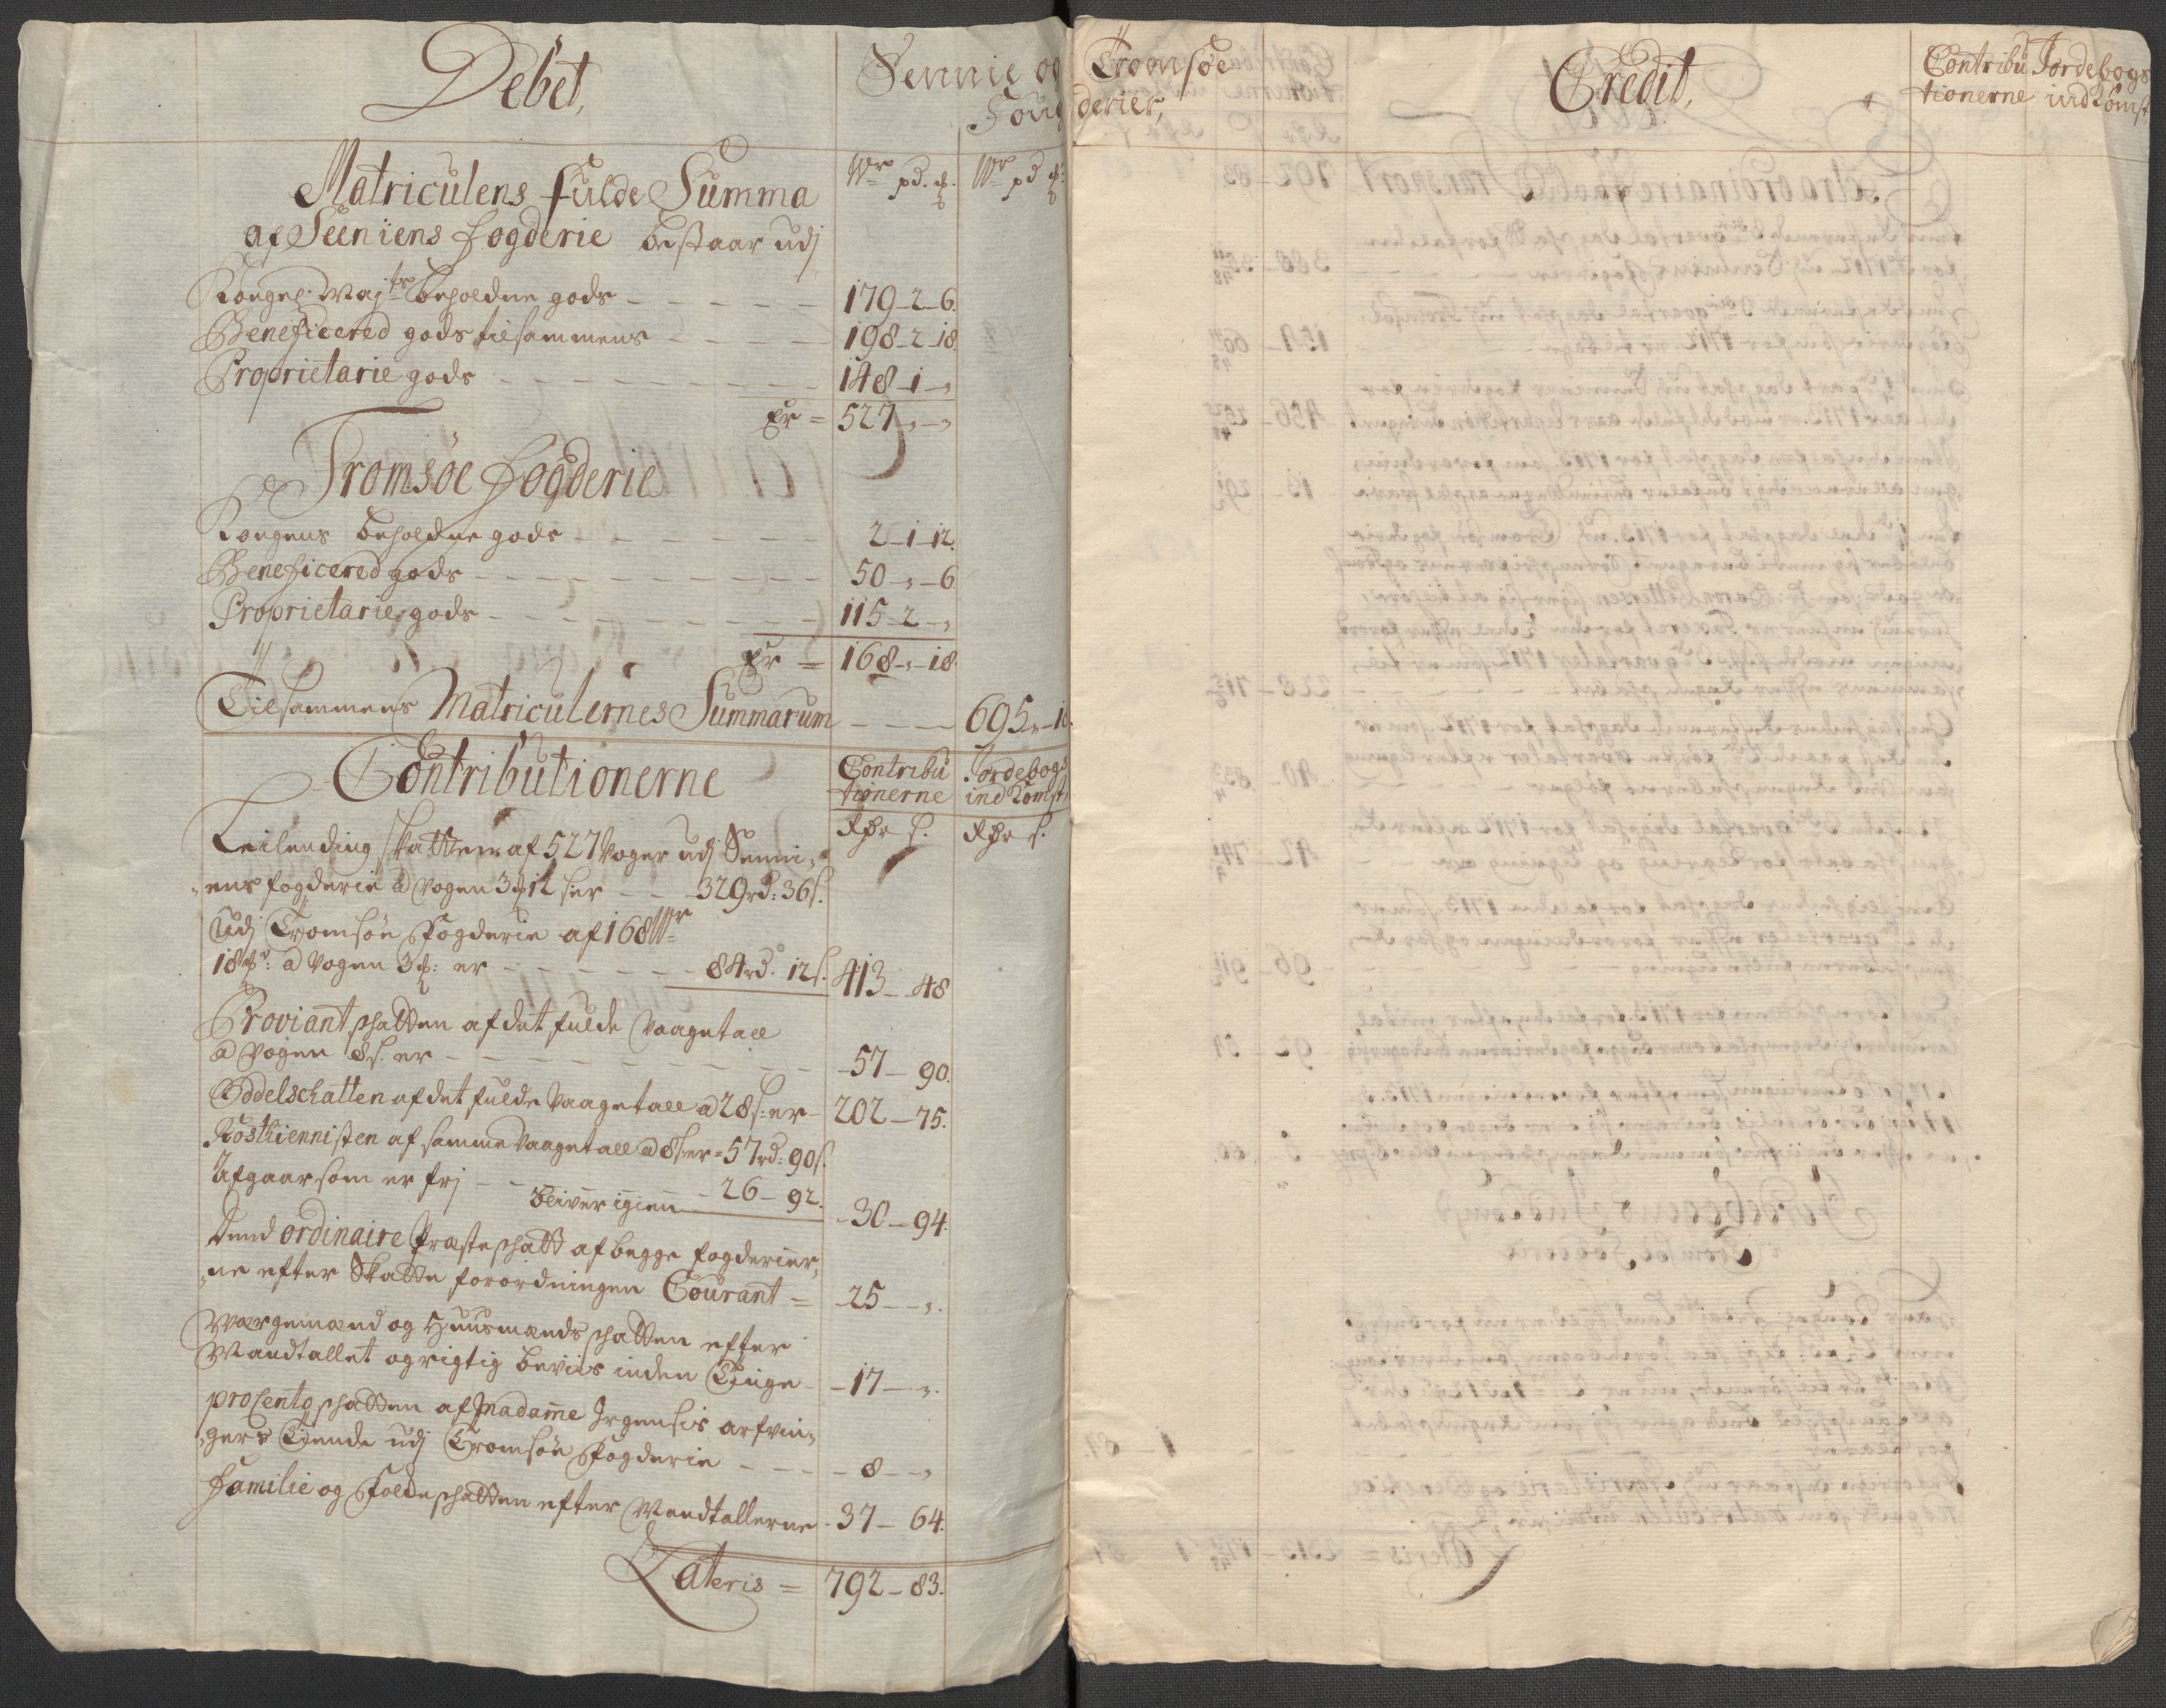 Debet,
Sennie og
Foug
Matriculens fulde Summa
af Seeniens fogderie bestaar udj
Wr pd. ℔.
Wr pd ℔
Kongel: Maj:ts beholdne gods – – – – – 179 – 2 – 6.
Beneficered gods tilsammens – – – – 198 – 2 – 18.
Proprietarie gods – – – – – – – – 148 – 1 – „
Er = 527 – „ – „
Tromsöe fogderie
Kongens beholdne gods – – – – – – 2 – 1 – 12.
Beneficered gods – – – – – – – – 50 – „ – 6
Proprietarie gods – – – – – – – – 115 – 2 – „
Er = 168 – „ – 18.
Tilsammens Matriculernes Summarum – – – 695 „ – 18
Contributionerne
Contribu
tionerne
Jordebogs
ind Komst
Rdr s.
Rdr s.
Leilending skatten af 527 voger udj Senni-
ens fogderie a vogen 3 ℔ 12 s er – – 329 rd: 36 s.
Udj Tromsöe Fogderie af 168 Wr
18 ℔: a vogen 3 ℔: er – – – – – – 84 rd. 12 s. 413 – 48
Proviant schatten af det fulde vaagetall
a vogen 8 s. er – – – – – – – – 57 – 90.
Oddelschatten af det fulde vaagetall a 28 s: er – 202 – 75.
Rostkiennisten af samme vaagetall a 8 s er = 57 rd: 90 s.
Afgaar som er frj – – – 26 – 92.
bliver igien – 30 – 94.
Dend ordinaire Præsteschatt af begge fogderier-
ne efter Skatte forordningen Courant = 25 – „.
Wærgemænd og Huusmands schatten efter
Mandtallet og rigtig beviis inden Tinge – 17 – „.
procento schatten af madame Jrgensis arfvin-
gers Tiende udj Tromsöe Fogderie – – – – 8 – „
Familie og Folcke schatten efter Mandtallerne – 37 – 64.
Lateris = 792 – 83.
Tromsöe
derier,
Credit,
Contribu
tionerne
Jordebogs
ind Komst